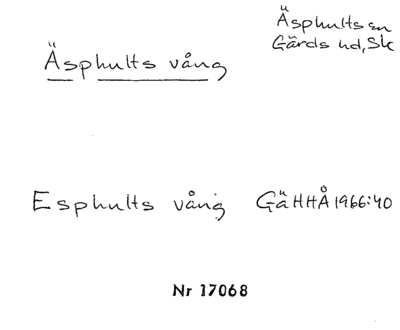 Äsphults sn
Gärds hd, Sk
Äsphults vång
Esphults vång GäHHÅ 1966:40
Nr 17068